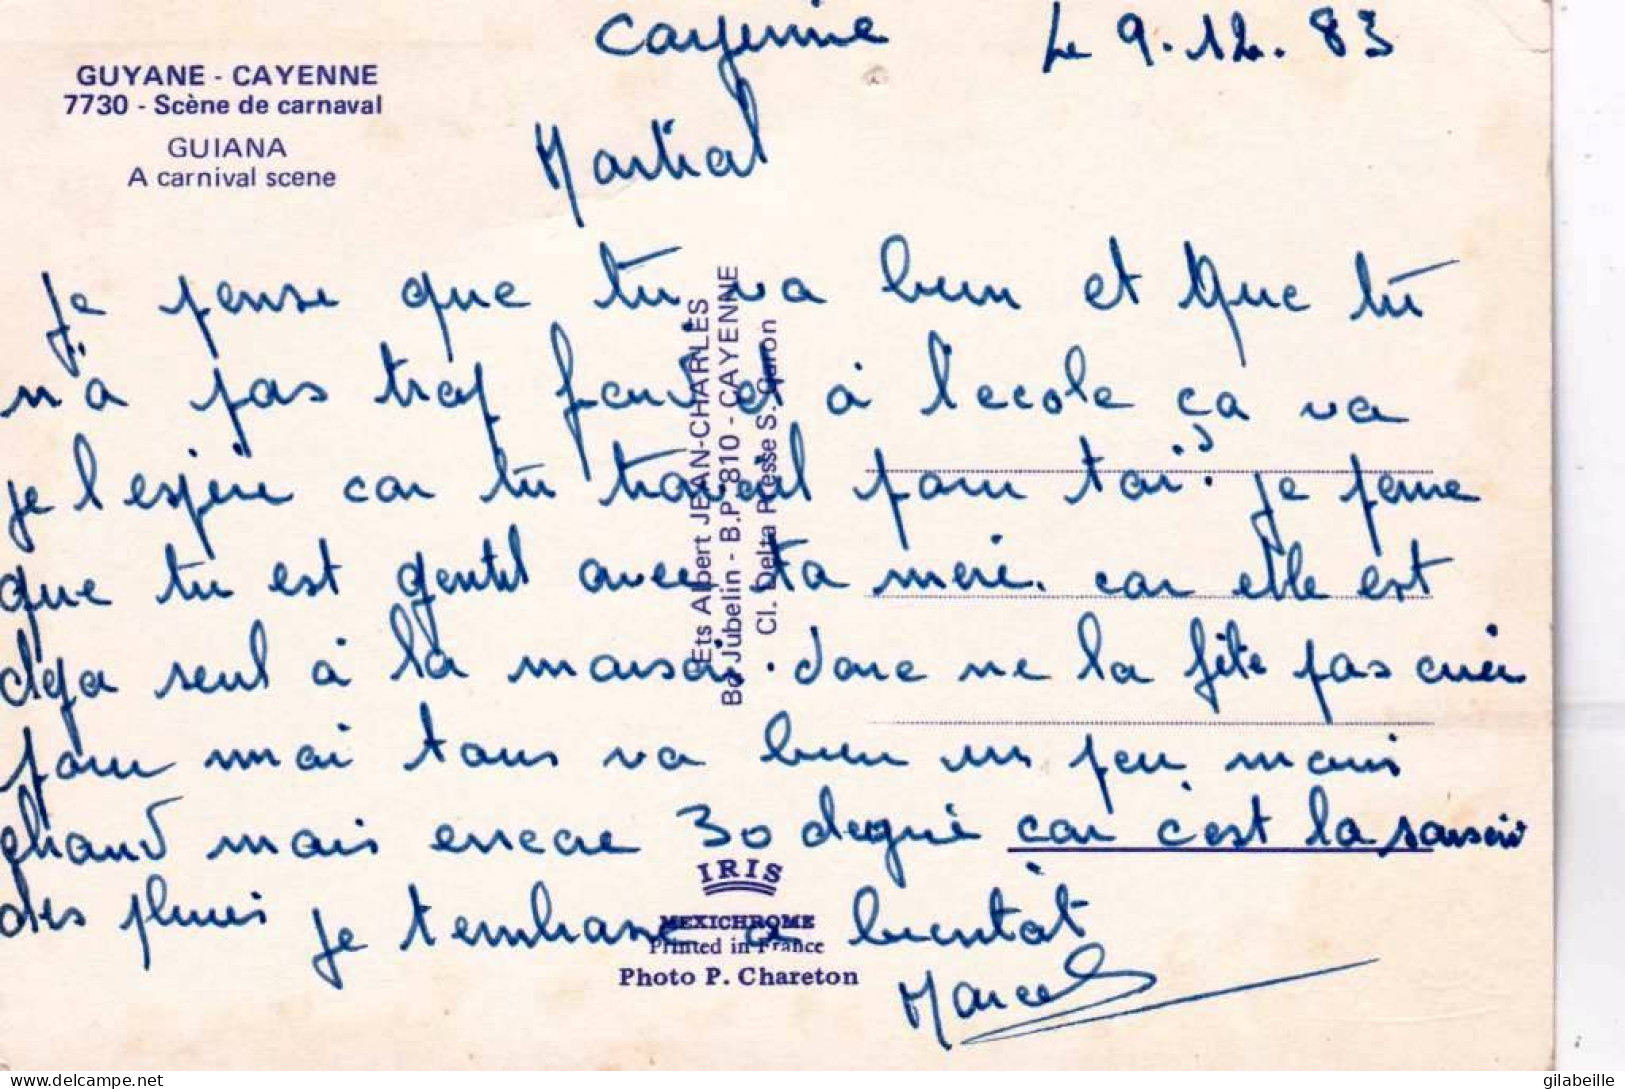 GUYANE - CAYENNE
7730 - Scène de carnaval
GUIANA
A carnival scene
Cayenne Le 9.12.83
Martial
je pense que tu va bien et que tu
n'a pas trop froid et à l'ecole ça va
je l'espère car tu travail pour toi. je pense
que tu est gentil avec ta mère. car elle est
deja seul à la maison. donc ne la fête pas
pour moi tous va bien un peu mais
chaud mais encore 30 degré car c'est la saison
des pluies je t'embrasse a bientôt
Marcel
Ets Albert JEAN-CHARLES
Bd Jubelin - B.P. 810 - CAYENNE
Cl. Delta Presse S. Guron
IRIS
MEXICHROME
Printed in France
Photo P. Chareton
delcampe.net
gilabeille